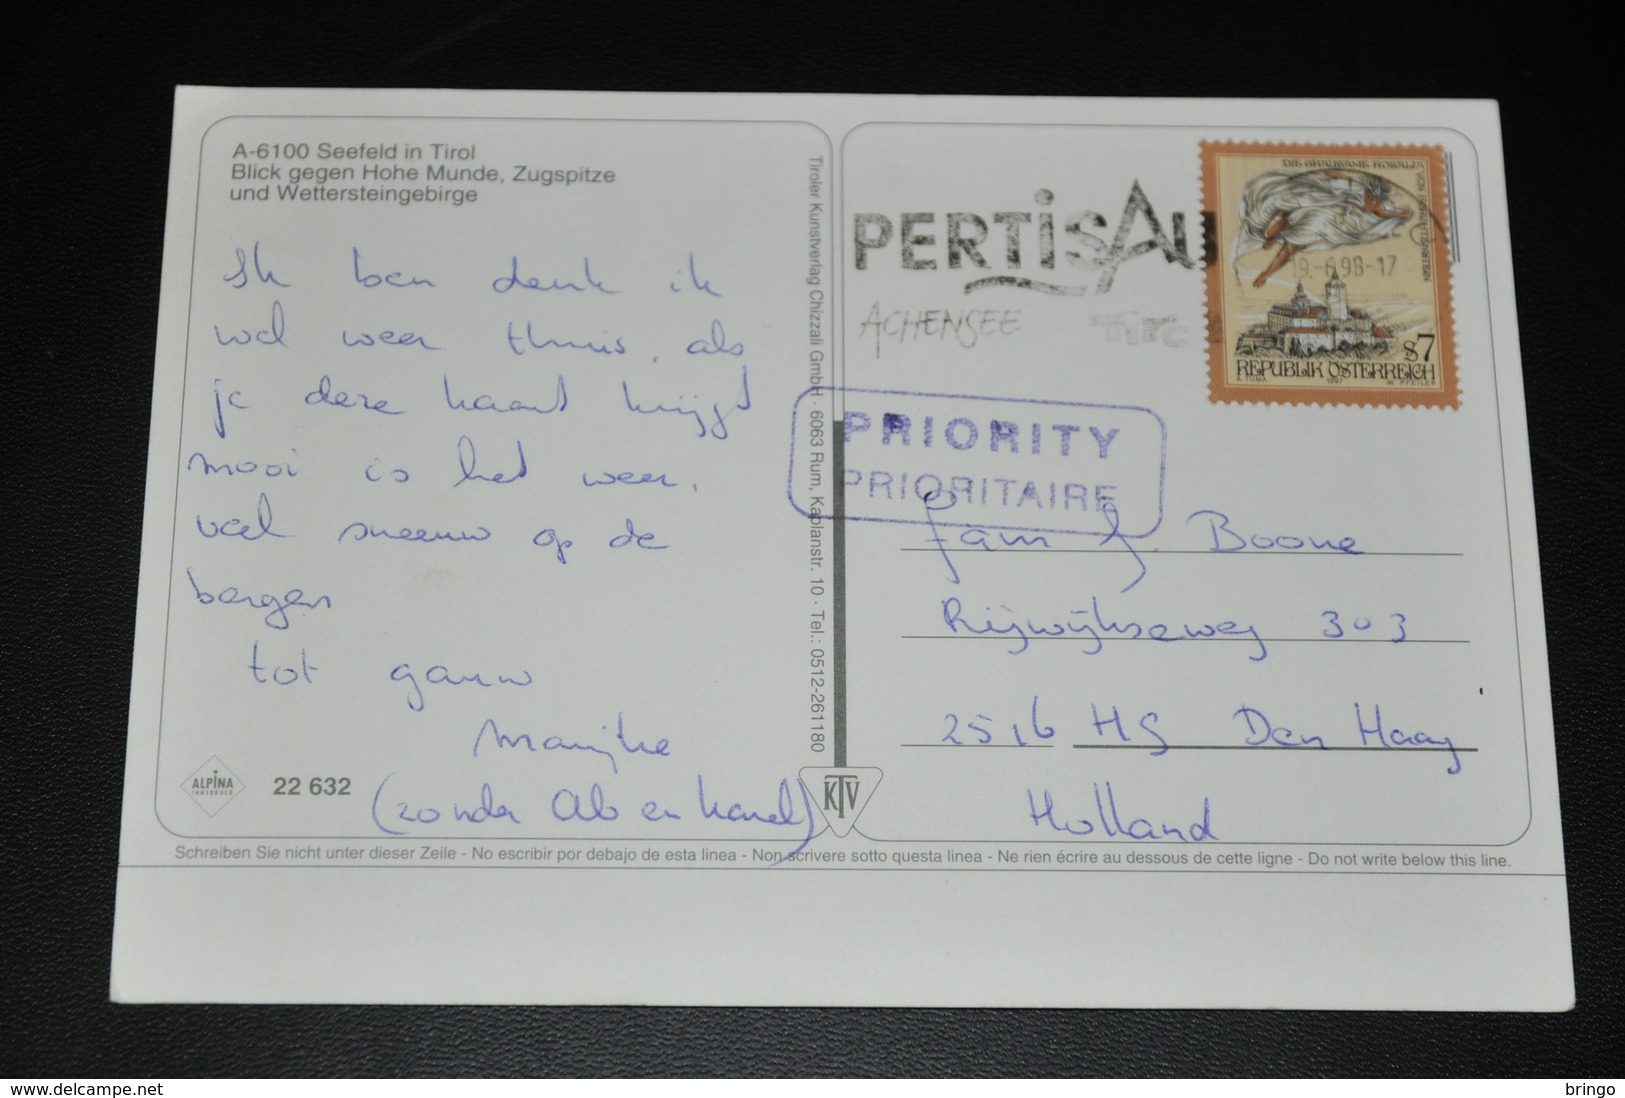 A-6100 Seefeld in Tirol
Blick gegen Hohe Munde, Zugspitze
und Wettersteingebirge
Ik ben denk ik
wel weer thuis, als
je deze kaart krijgt
mooi is het weer,
veel sneeuw op de
bergen
tot gauw
Marijke
(zonder Ab en karel)
ALPINA
INNSBRUCK
22 632
Tiroler Kunstverlag Chizzali GmbH · 6063 Rum, Kaplanstr. 10 · Tel.: 0512-261180
KTV
PERTISAU
ACHENSEE
DIE GRAUSAME ROSALIA VON
19.-6.98-17
S7
REPUBLIK ÖSTERREICH
A. TUMA 1997 W. PFEILER
PRIORITY
PRIORITAIRE
Fam J. Boone
Rijswijkseweg 303
2516 HS Den Haag
Holland
Schreiben Sie nicht unter dieser Zeile - No escribir por debajo de esta linea - Non scrivere sotto questa linea - Ne rien écrire au dessous de cette ligne - Do not write below this line.
www.delcampe.net
bringo